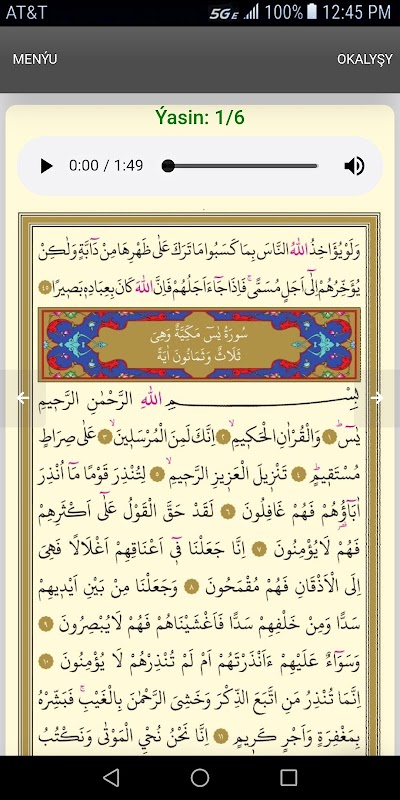 AT&T 5G E 100% 12:45 PM
MENÝU OKALYŞY
Ýasin: 1/6
0:00 / 1:49
وَلَوْ يُؤَاخِذُ اللّٰهُ النَّاسَ بِمَا كَسَبُوا مَا تَرَكَ عَلٰى ظَهْرِهَا مِنْ دَٓابَّةٍ وَلٰكِنْ
يُؤَخِّرُهُمْ اِلٰٓى اَجَلٍ مُسَمًّىۚ فَاِذَا جَٓاءَ اَجَلُهُمْ فَاِنَّ اللّٰهَ كَانَ بِعِبَادِه۪ بَص۪يرًا ٤٥
سُورَةُ يٰسٓ مَكِّيَّةٌ وَهِىَ
ثَلَاثٌ وَثَمَانُونَ اٰيَةً
بِسْمِ اللّٰهِ الرَّحْمٰنِ الرَّح۪يمِ
يٰسٓۜ ١ وَالْقُرْاٰنِ الْحَك۪يمِۙ ٢ اِنَّكَ لَمِنَ الْمُرْسَل۪ينَۙ ٣ عَلٰى صِرَاطٍ
مُسْتَق۪يمٍۜ ٤ تَنْز۪يلَ الْعَز۪يزِ الرَّح۪يمِۙ ٥ لِتُنْذِرَ قَوْمًا مَٓا اُنْذِرَ
اٰبَٓاؤُ۬هُمْ فَهُمْ غَافِلُونَ ٦ لَقَدْ حَقَّ الْقَوْلُ عَلٰٓى اَكْثَرِهِمْ
فَهُمْ لَا يُؤْمِنُونَ ٧ اِنَّا جَعَلْنَا ف۪ٓى اَعْنَاقِهِمْ اَغْلَالًا فَهِىَ
اِلَى الْاَذْقَانِ فَهُمْ مُقْمَحُونَ ٨ وَجَعَلْنَا مِنْ بَيْنِ اَيْد۪يهِمْ
سَدًّا وَمِنْ خَلْفِهِمْ سَدًّا فَاَغْشَيْنَاهُمْ فَهُمْ لَا يُبْصِرُونَ ٩
وَسَوَٓاءٌ عَلَيْهِمْ ءَاَنْذَرْتَهُمْ اَمْ لَمْ تُنْذِرْهُمْ لَا يُؤْمِنُونَ ١٠
اِنَّمَا تُنْذِرُ مَنِ اتَّبَعَ الذِّكْرَ وَخَشِىَ الرَّحْمٰنَ بِالْغَيْبِۚ فَبَشِّرْهُ
بِمَغْفِرَةٍ وَاَجْرٍ كَر۪يمٍ ١١ اِنَّا نَحْنُ نُحْيِ الْمَوْتٰى وَنَكْتُبُ